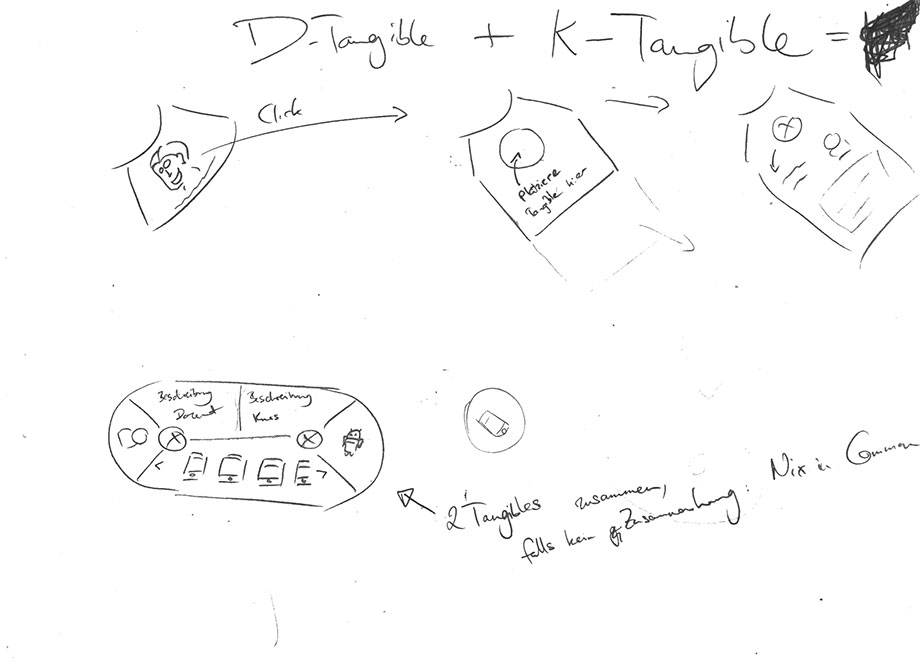 D-Tangible + K-Tangible =
Click
Platziere
Tangible hier
Beschreibung
Dozent
Beschreibung
Kurs
2 Tangibles zusammen,
falls kein Zusammenhang: Nix in Common